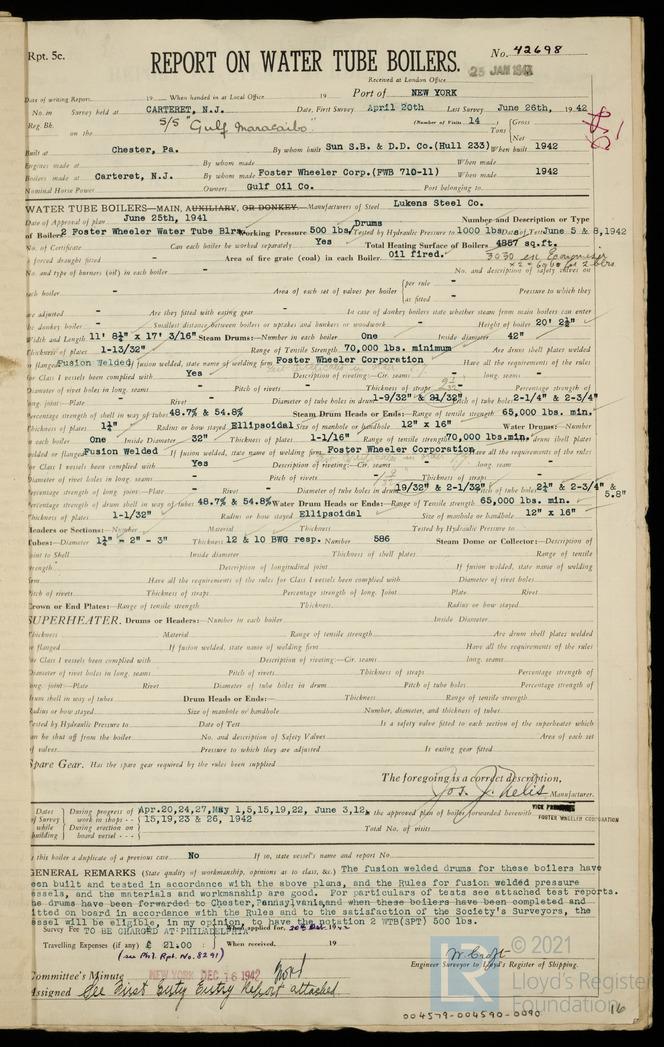 Rpt. 5c.
REPORT ON WATER TUBE BOILERS.
No. 42698
Received at London Office
25 JAN 194
Date of writing Report 19 When handed in at Local Office 19 Port of NEW YORK
No. in Survey held at CARTERET, N.J. Date, First Survey April 20th Last Survey June 26th, 1942
Reg. Bk. (Number of Visits 14)
on the S/S "Gulf Maracaibo" Tons Gross Net
Built at Chester, Pa. By whom built Sun S.B. & D.D. Co.(Hull 233) When built 1942
Engines made at By whom made When made
Boilers made at Carteret, N.J. By whom made Foster Wheeler Corp.(FWB 710-11) When made 1942
Nominal Horse Power Owners Gulf Oil Co. Port belonging to
WATER TUBE BOILERS—MAIN, AUXILIARY, OR DONKEY.—Manufacturers of Steel Lukens Steel Co.
Date of Approval of plan June 25th, 1941 Number and Description or Type
of Boilers 2 Foster Wheeler Water Tube Blrs. Working Pressure 500 lbs. Drums Tested by Hydraulic Pressure to 1000 lbs. Date of Test June 5 & 8, 1942
No. of Certificate - Can each boiler be worked separately Yes Total Heating Surface of Boilers 4857 sq.ft.
is forced draught fitted - Area of fire grate (coal) in each Boiler Oil fired. 3030 in Economiser
No. and type of burners (oil) in each boiler - No. and description of safety valves on
each boiler - Area of each set of valves per boiler per rule - as fitted - Pressure to which they
are adjusted - Are they fitted with easing gear - In case of donkey boilers state whether steam from main boilers can enter
the donkey boiler - Smallest distance between boilers or uptakes and bunkers or woodwork - Height of boiler 20' 2½"
Width and Length 11' 8¼" x 17' 3/16" Steam Drums:—Number in each boiler One Inside diameter 42"
Thickness of plates 1-13/32" Range of Tensile Strength 70,000 lbs. minimum Are drum shell plates welded
or flanged Fusion Welded If fusion welded, state name of welding firm Foster Wheeler Corporation Have all the requirements of the rules
for Class I vessels been complied with Yes Description of riveting:—Cir. seams - long. seams -
Diameter of rivet holes in long. seams - Pitch of rivets - Thickness of straps - Percentage strength of
long. joint:—Plate - Rivet - Diameter of tube holes in drum 1-9/32" & 31/32" Pitch of tube holes 2-1/4" & 2-3/4"
Percentage strength of shell in way of tubes 48.7% & 54.8% Steam Drum Heads or Ends:—Range of tensile strength 65,000 lbs. min.
Thickness of plates 1¼" Radius or how stayed Ellipsoidal Size of manhole or handhole 12" x 16" Water Drums:—Number
in each boiler One Inside Diameter 32" Thickness of plates 1-1/16" Range of tensile strength 70,000 lbs.min. Are drum shell plates
welded or flanged Fusion Welded If fusion welded, state name of welding firm Foster Wheeler Corporation Have all the requirements of the rules
for Class I vessels been complied with Yes Description of riveting:—Cir. seams - long. seams -
Diameter of rivet holes in long. seams - Pitch of rivets - Thickness of straps -
Percentage strength of long joint:—Plate - Rivet - Diameter of tube holes in drum 19/32" & 2-1/32" Pitch of tube holes 2¼" & 2-3/4" & 5.8"
Percentage strength of drum shell in way of tubes 48.7% & 54.8% Water Drum Heads or Ends:—Range of Tensile Strength 65,000 lbs. min.
Thickness of plates 1-1/32" Radius or how stayed Ellipsoidal Size of manhole or handhole 12" x 16"
Headers or Sections:—Number Material Thickness Tested by Hydraulic Pressure to
Tubes:—Diameter 1¼" - 2" - 3" Thickness 12 & 10 BWG resp. Number 586 Steam Dome or Collector:—Description of
Joint to Shell Inside diameter Thickness of shell plates Range of tensile
strength Description of longitudinal joint If fusion welded, state name of welding
firm Have all the requirements of the rules for Class I vessels been complied with Diameter of rivet holes
Pitch of rivets Thickness of straps Percentage strength of long. joint Plate Rivet
Crown or End Plates:—Range of tensile strength Thickness Radius or how stayed
SUPERHEATER. Drums or Headers:—Number in each boiler Inside Diameter
Thickness Material Range of tensile strength Are drum shell plates welded
or flanged If fusion welded, state name of welding firm Have all the requirements of the rules
for Class I vessels been complied with Description of riveting:—Cir. seams long. seams
Diameter of rivet holes in long. seams Pitch of rivets Thickness of straps Percentage strength of
long. joint:—Plate Rivet Diameter of tube holes in drum Pitch of tube holes Percentage strength of
drum shell in way of tubes Drum Heads or Ends:—Thickness Range of tensile strength
Radius or how stayed Size of manhole or handhole Number, diameter, and thickness of tubes
Tested by Hydraulic Pressure to Date of Test Is a safety valve fitted to each section of the superheater which
can be shut off from the boiler No. and description of Safety Valves Area of each set
of valves Pressure to which they are adjusted Is easing gear fitted
Spare Gear. Has the spare gear required by the rules been supplied
The foregoing is a correct description,
Jos. J. Nelis Manufacturer.
VICE PRESIDENT
FOSTER WHEELER CORPORATION
Dates of Survey while building During progress of work in shops - - Apr.20,24,27,May 1,5,15,19,22, June 3,12, Is the approved plan of boiler forwarded herewith
15,19,23 & 26, 1942
During erection on board vessel - - - Total No. of visits
Is this boiler a duplicate of a previous case No If so, state vessel's name and report No.
GENERAL REMARKS (State quality of workmanship, opinions as to class, &c.) The fusion welded drums for these boilers have
been built and tested in accordance with the above plans, and the Rules for fusion welded pressure
vessels, and the materials and workmanship are good. For particulars of tests see attached test reports.
The drums have been forwarded to Chester, Pennsylvania, and when these boilers have been completed and
fitted on board in accordance with the Rules and to the satisfaction of the Society's Surveyors, the
vessel will be eligible, in my opinion, to have the notation 2 WTB(SPT) 500 lbs.
Survey Fee TO BE CHARGED AT PHILADELPHIA When applied for, 1942
Travelling Expenses (if any) £ 21.00 : When received, 19
(see Phl. Rpt. No. 8291)
W. Croft
Engineer Surveyor to Lloyd's Register of Shipping.
Committee's Minute NEW YORK DEC 16 1942
Assigned See First Entry Report attached.
© 2021
LR
Lloyd's Register
Foundation
004579-004590-0090
16